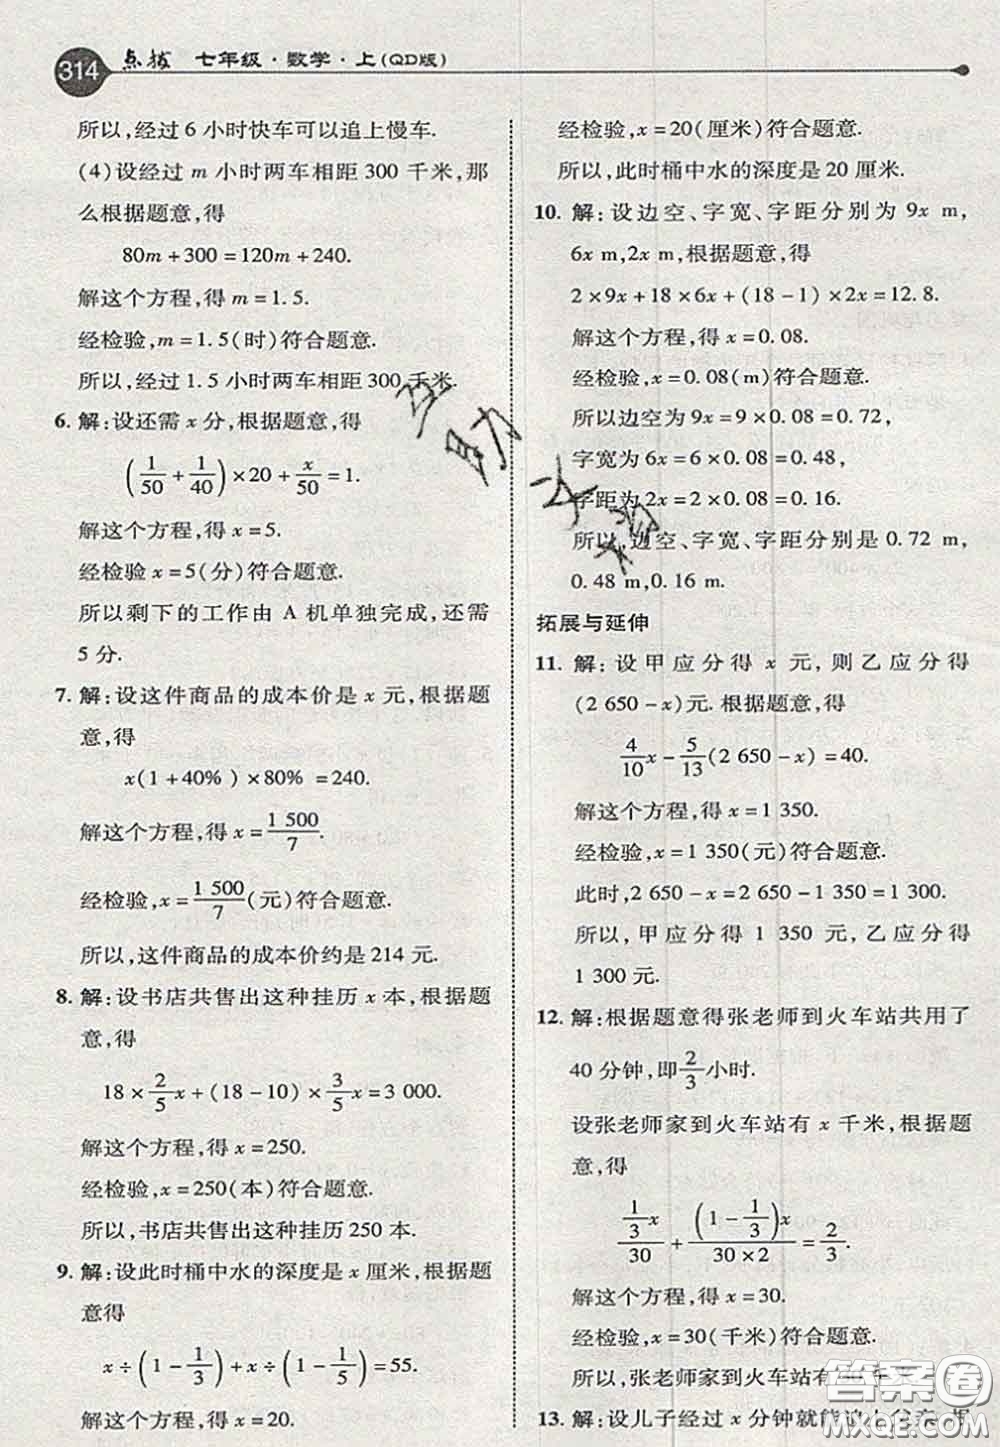 314 点拨 七年级·数学·上(QD版)
所以,经过6小时快车可以追上慢车.
(4)设经过m小时两车相距300千米,那
么根据题意,得
80m+300=120m+240.
解这个方程,得m=1.5.
经检验,m=1.5(时)符合题意.
所以,经过1.5小时两车相距300千米.
6. 解:设还需x分,根据题意,得
(1/50+1/40)×20+x/50=1.
解这个方程,得x=5.
经检验x=5(分)符合题意.
所以剩下的工作由A机单独完成,还需
5分.
7. 解:设这件商品的成本价是x元,根据题
意,得
x(1+40%)×80%=240.
解这个方程,得x=1 500/7.
经检验,x=1 500/7(元)符合题意.
所以,这件商品的成本价约是214元.
8. 解:设书店共售出这种挂历x本,根据题
意,得
18×2/5x+(18-10)×3/5x=3 000.
解这个方程,得x=250.
经检验,x=250(本)符合题意.
所以,书店共售出这种挂历250本.
9. 解:设此时桶中水的深度是x厘米,根据题
意得
x÷(1-1/3)+x÷(1-1/5)=55.
解这个方程,得x=20.
经检验,x=20(厘米)符合题意.
所以,此时桶中水的深度是20厘米.
10. 解:设边空、字宽、字距分别为9x m,
6x m,2x m,根据题意,得
2×9x+18×6x+(18-1)×2x=12.8.
解这个方程,得x=0.08.
经检验,x=0.08(m)符合题意.
所以边空为9x=9×0.08=0.72,
字宽为6x=6×0.08=0.48,
字距为2x=2×0.08=0.16.
所以,边空、字宽、字距分别是0.72 m,
0.48 m,0.16 m.
拓展与延伸
11. 解:设甲应分得x元,则乙应分得
(2 650-x)元.根据题意,得
4/10x-5/13(2 650-x)=40.
解这个方程,得x=1 350.
经检验,x=1 350(元)符合题意.
此时,2 650-x=2 650-1 350=1 300.
所以,甲应分得1 350元,乙应分得
1 300元.
12. 解:根据题意得张老师到火车站共用了
40分钟,即2/3小时.
设张老师家到火车站有x千米,根据题
意,得
(1/3x)/30+((1-1/3)x)/(30×2)=2/3.
解这个方程,得x=30.
经检验,x=30(千米)符合题意.
所以,张老师家到火车站有30千米.
13. 解:设儿子经过x分钟就能追上父亲,根
答案卷
MXQE.COM